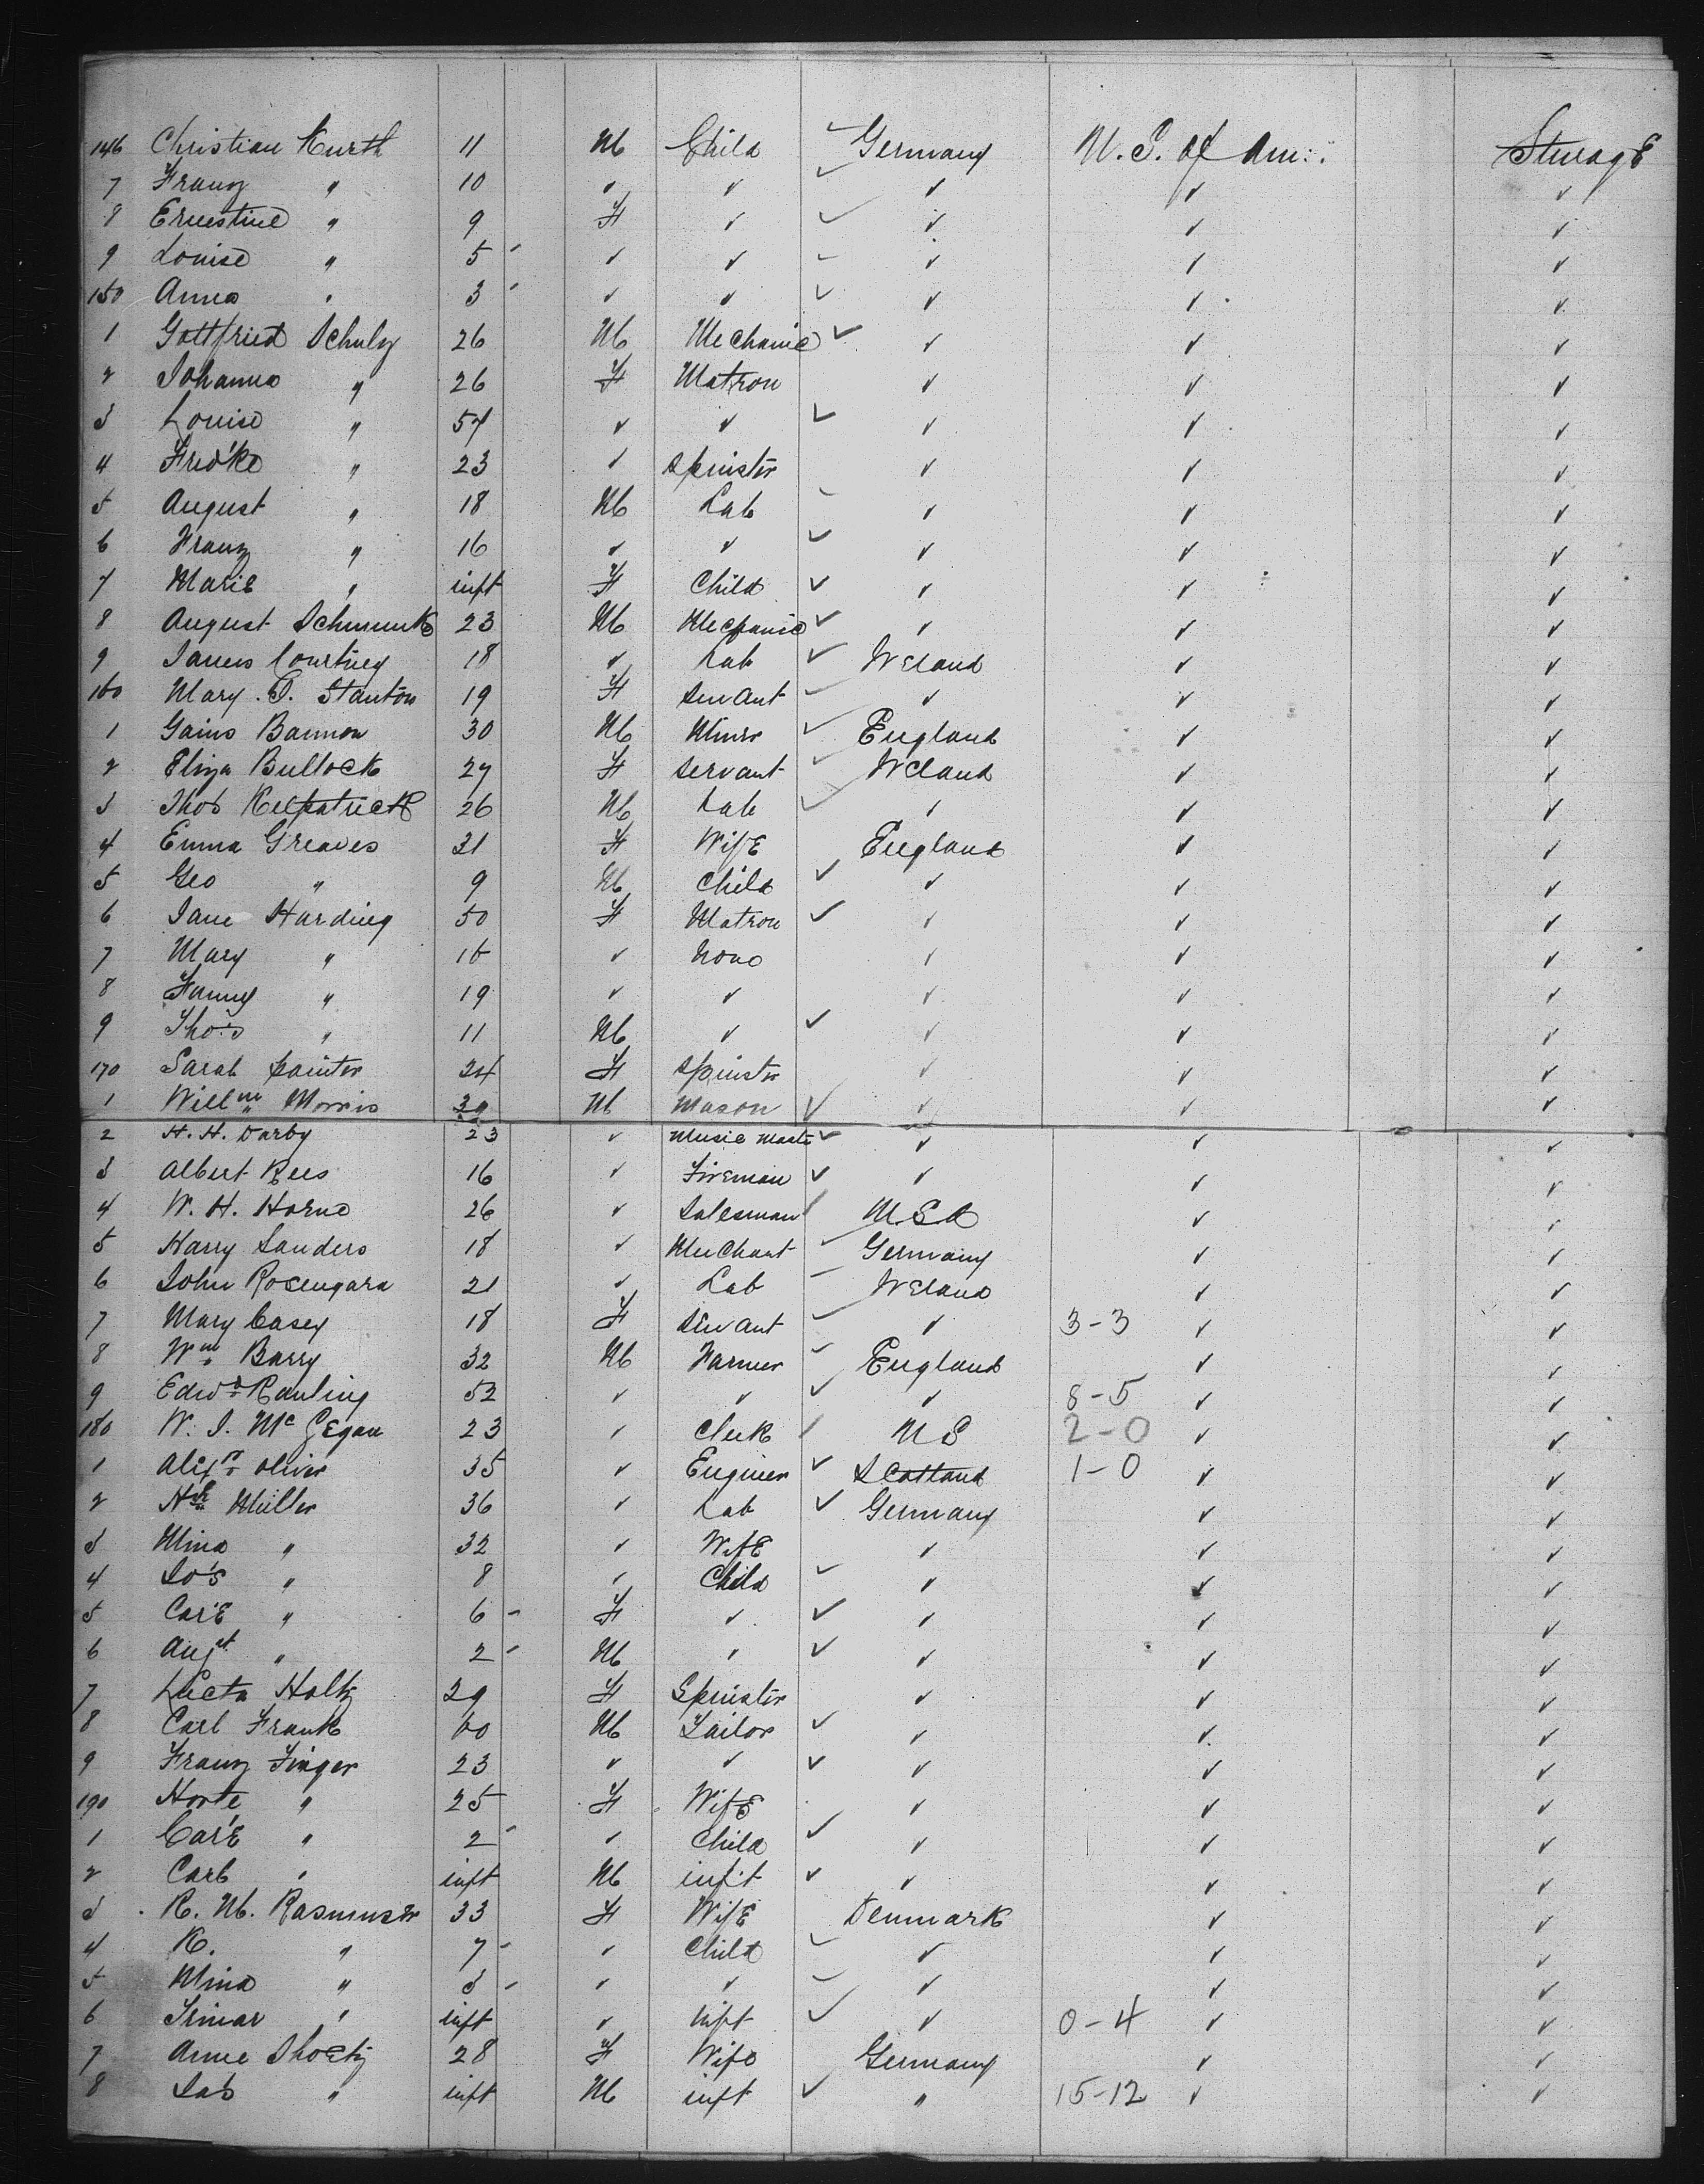 146 Christian Kurth 11 M Child ✓ Germany U. S. of Am: Steerage
7 Franz " 10 ✓ ✓ ✓ ✓ ✓ ✓
8 Ernestine " 9 F ✓ ✓ ✓ ✓ ✓
9 Louise " 5 - ✓ ✓ ✓ ✓ ✓ ✓
150 Anna " 3 - ✓ ✓ ✓ ✓ ✓ ✓
1 Gottfried Schulz 26 M Mechanic ✓ ✓ ✓ ✓
2 Johanna " 26 F Matron ✓ ✓ ✓
3 Louise " 54 ✓ ✓ ✓ ✓ ✓ ✓
4 Fred'ke " 23 ✓ Spinster ✓ ✓ ✓
5 August " 18 M Lab ✓ ✓ ✓ ✓
6 Franz " 16 ✓ ✓ ✓ ✓ ✓ ✓
7 Marie " inft F Child ✓ ✓ ✓ ✓
8 August 23 M Mechanic ✓ ✓ ✓ ✓
9 James Courtney 18 ✓ Lab ✓ Ireland ✓ ✓
160 Mary. Stanton 19 F Servant ✓ ✓ ✓ ✓
1 Bannon 30 M Miner ✓ England ✓ ✓
2 Eliza Bullock 27 F Servant ✓ Ireland ✓ ✓
3 Thos Kilpatrick 26 M Lab ✓ ✓ ✓ ✓
4 Emma Greaves 31 F Wife England ✓ ✓
5 Geo " 9 M Child ✓ ✓ ✓ ✓
6 Jane Harding 50 F Matron ✓ ✓ ✓ ✓
7 Mary " 16 ✓ None ✓ ✓ ✓
8 Fanny " 19 ✓ ✓ ✓ ✓ ✓
9 Tho:s " 11 M ✓ ✓ ✓ ✓ ✓
170 Sarah Painter 24 F Spinster ✓ ✓ ✓
1 Willm Morris 39 M Mason ✓ ✓ ✓ ✓
2 H. H. Darby 23 ✓ Music Mastr ✓ ✓ ✓ ✓
3 Albert Rees 16 ✓ Fireman ✓ ✓ ✓ ✓
4 W. H. Horne 26 ✓ Salesman ✓ U.S.A ✓ ✓
5 Harry Sanders 18 ✓ Merchant ✓ Germany ✓ ✓
6 John 21 ✓ Lab ✓ Ireland ✓ ✓
7 Mary Casey 18 F Servant ✓ ✓ 3-3 ✓ ✓
8 Wm Barry 32 M Farmer ✓ England ✓ ✓
9 Edwd Rauling 52 ✓ ✓ ✓ ✓ 8-5 ✓ ✓
180 W. J. Mc Gegan 23 ✓ Clerk ✓ U S 2-0 ✓ ✓
1 Alexr Oliver 35 ✓ Enginer ✓ Scotland 1-0 ✓ ✓
2 Müller 36 ✓ Lab ✓ Germany ✓ ✓
3 Mina " 32 ✓ Wife ✓ ✓ ✓
4 Jo's " 8 ✓ Child ✓ ✓ ✓ ✓
5 Car'E " 6 - F ✓ ✓ ✓ ✓ ✓
6 Augt " 2 - M ✓ ✓ ✓ ✓ ✓
7 Holtz 29 F Spinster ✓ ✓ ✓
8 Carl Frank 60 M Tailor ✓ ✓ ✓ ✓
9 Franz Finger 23 ✓ ✓ ✓ ✓ ✓ ✓
190 " 25 F Wife ✓ ✓ ✓
1 Car'E " 2 - ✓ Child ✓ ✓ ✓ ✓
2 Carl " inft M inft ✓ ✓ ✓ ✓
3 K. M. Rasmusen 33 F Wife Denmark ✓ ✓
4 K. " 7 - ✓ Child ✓ ✓ ✓ ✓
5 Mina " 3 - ✓ ✓ ✓ ✓ ✓ ✓
6 " inft ✓ inft ✓ ✓ 0-4 ✓ ✓
7 Anne 28 F Wife Germany ✓ ✓
8 " inft M inft ✓ " 15-12 ✓ ✓